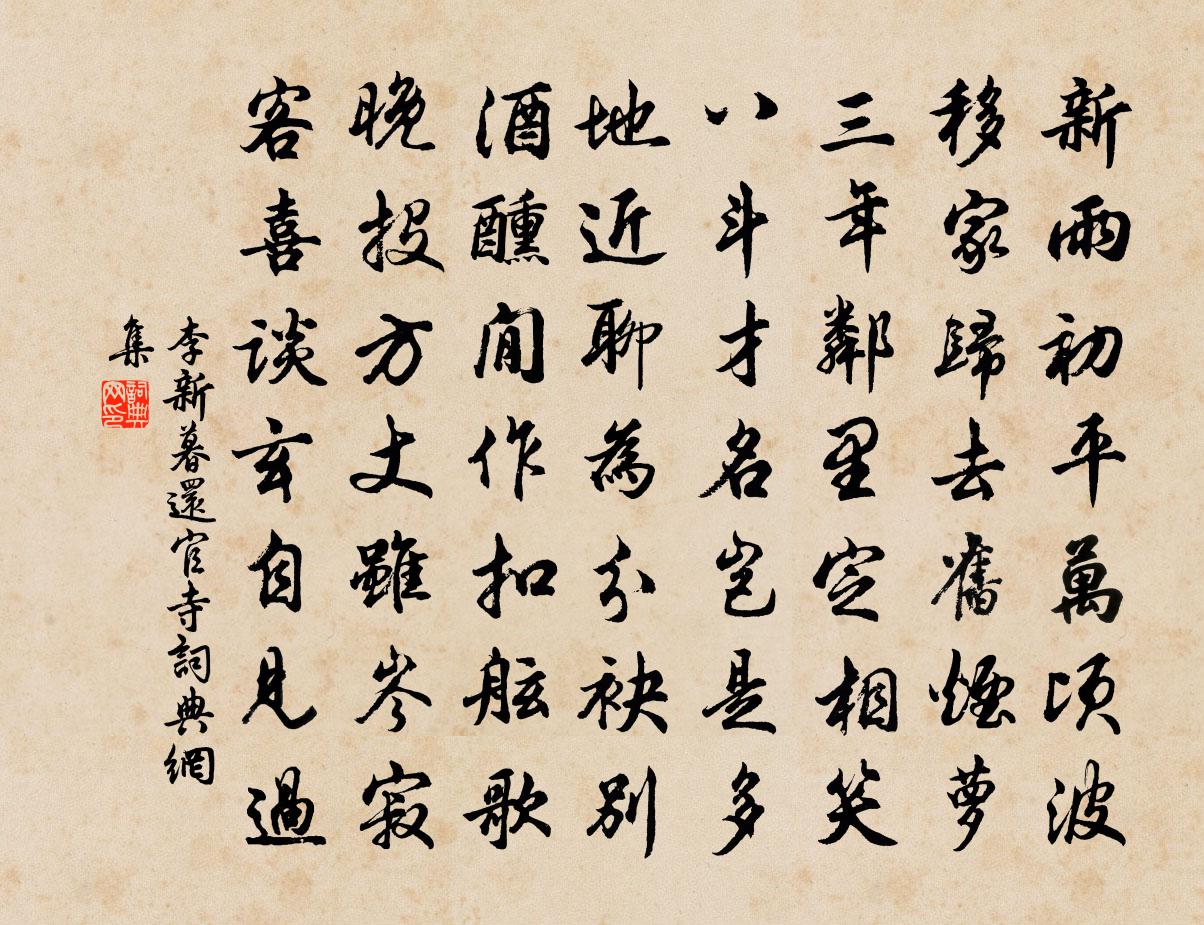 新雨初平萬頃波
移家歸去舊煙蘿
三年鄰里定相笑
八斗才名豈是多
地近聊為分袂別
酒醺閒作扣舷歌
晚投方丈雖岑寂
客喜談玄自見過
李新暮還官寺詞典網
集
詞典
网印